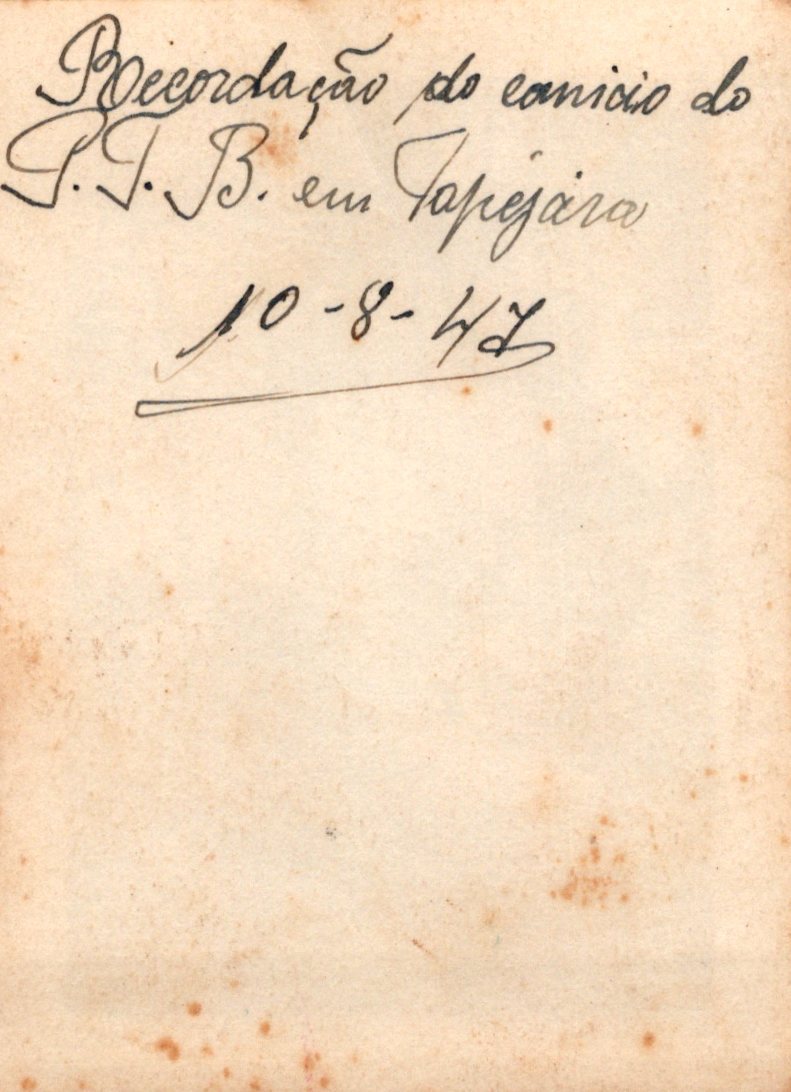 Recordação do comicio do
P.T.B. em Tapéjára
10-8-47